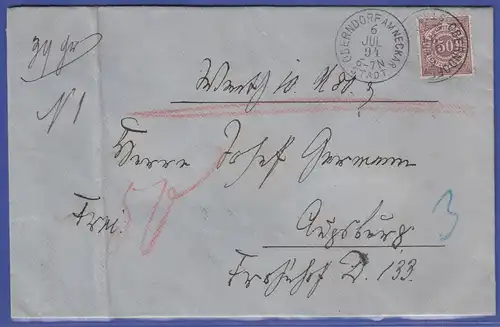 39 gr
OBERNDORF AM NECKAR
6
JUL
94
6-7N
STADT
50
N 1
Werth 10
Herrn Josef Germann
Frei.
Augsburg.
3
Frohnhof D. 133.